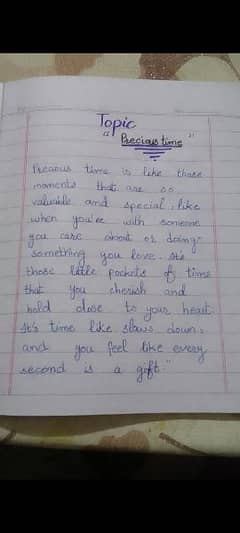 Topic
"Precious time"
Precious time is like those
moments that are so
valuable and special, like
when you're with someone
you care about or doing
something you love. It's
those little pockets of time
that you cherish and
hold close to your heart.
It's time like slows down,
and you feel like every
second is a gift."